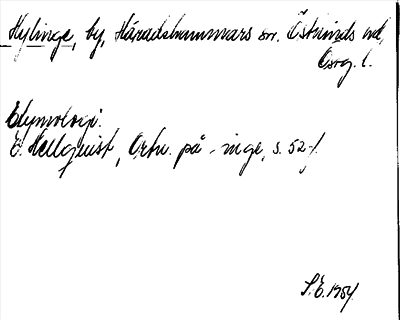 Hylinge, by, Häradshammars sn. Östkinds hd,
Ösrg. l.
Etymologi.
E. Hellquist, Ortn. på -inge, s. 52 f.
S.E. 1954.